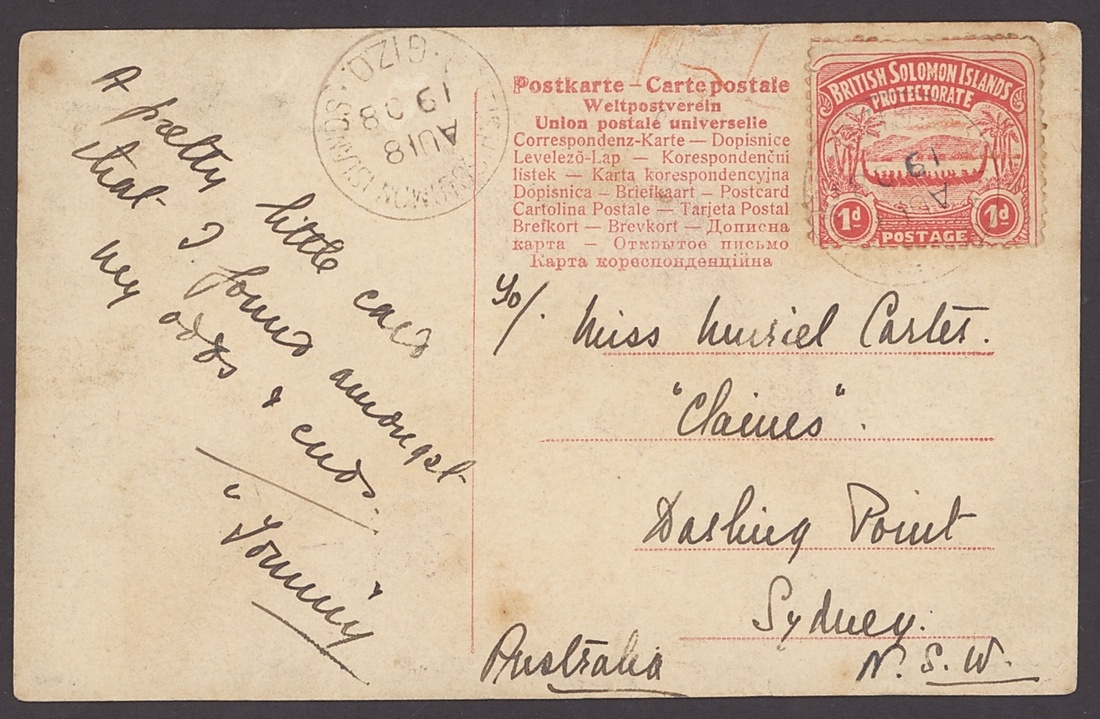 A pretty little card
that I found amongst
my odds & ends.
"Tommy"
SOLOMON ISLANDS. GIZO.
AU 18
19 08
Postkarte – Carte postale
Weltpostverein
Union postale universelle
Correspondenz-Karte — Dopisnice
Levelező-Lap — Korespondenční
lístek — Karta korespondencyjna
Dopisnica — Briefkaart — Postcard
Cartolina Postale — Tarjeta Postal
Brefkort — Brevkort — Дописна
карта — Открытое письмо
Карта кореспонденційна
BRITISH SOLOMON ISLANDS
PROTECTORATE
1d POSTAGE 1d
Miss Muriel Carter.
"Claines".
Darling Point
Sydney.
Australia N. S. W.